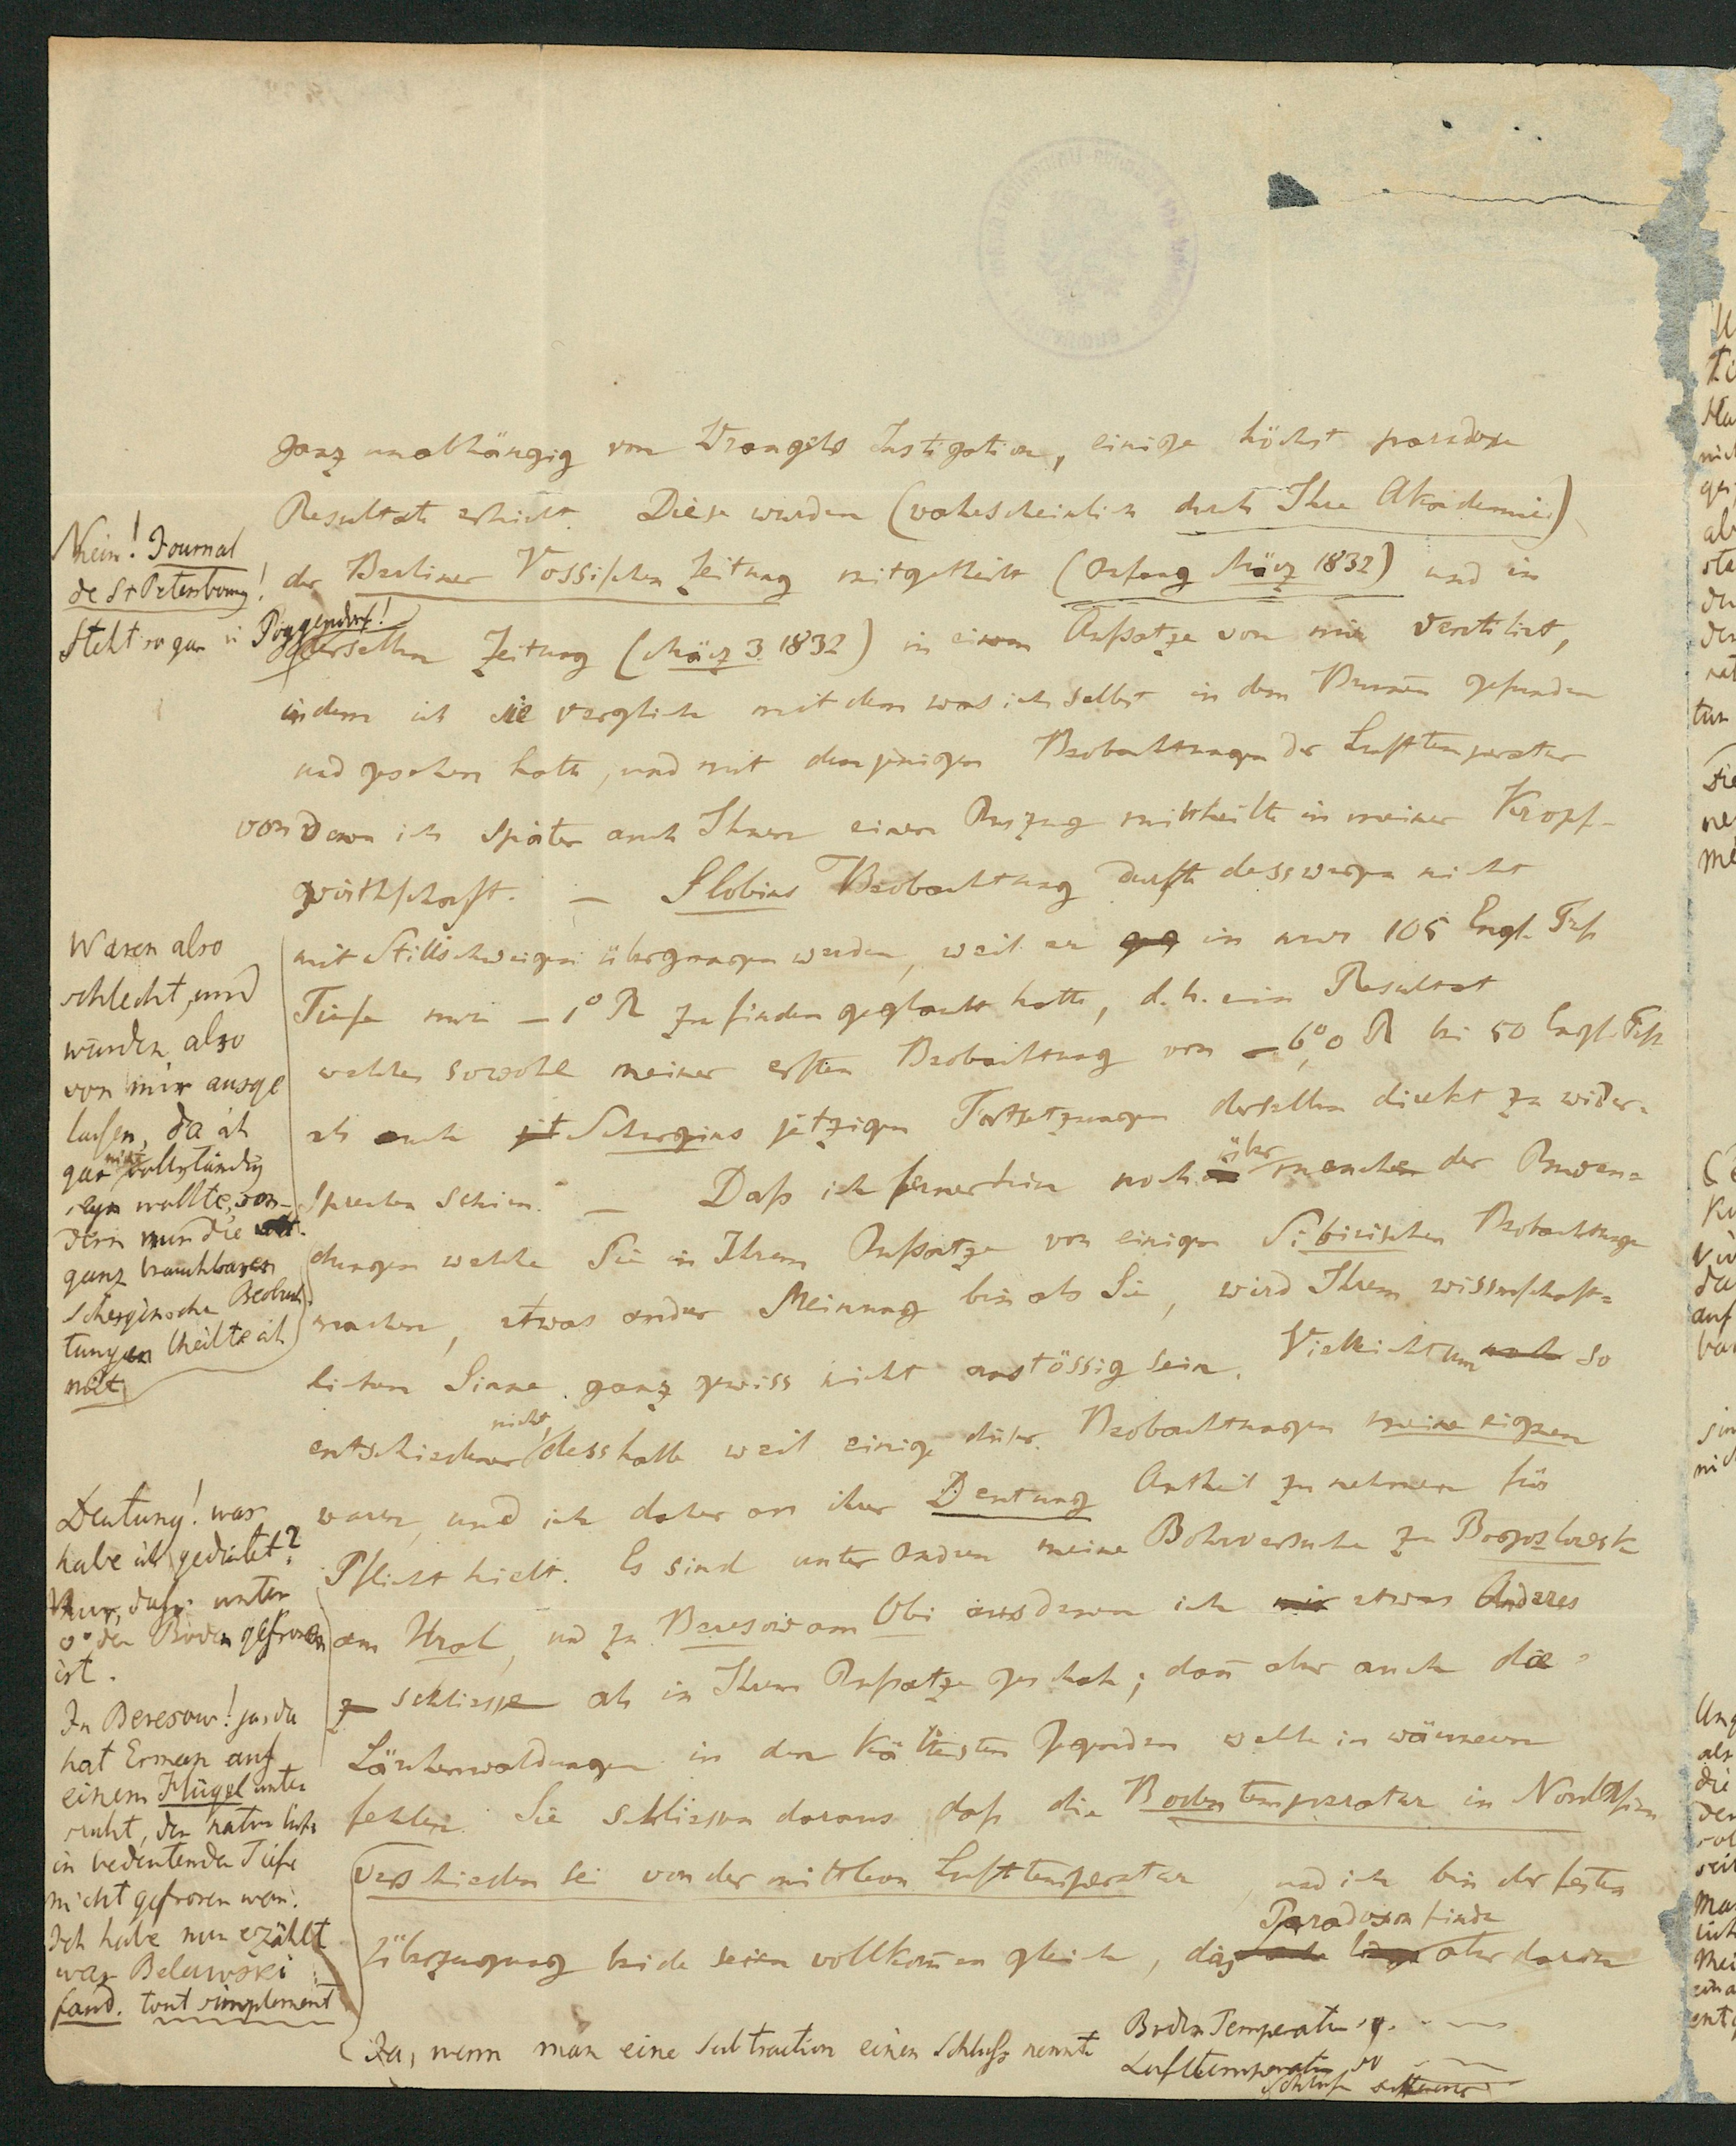 ganz unabhängig von Wrangels Instigation, einige höchst paradoxe
Resultate erhielt. Diese wurden (wahrscheinlich durch Ihre Akademie)
der Berliner Vossischen Zeitung mitgetheilt (Anfang März 1832) und in
derselben Zeitung (März 3. 1832) in einem Aufsatze von mir ventilirt,
indem ich sie verglich mit dem was ich selbst in dem Brunnen gefunden
und gesehen hatte, und mit denjenigen Beobachtungen der Lufttemperatur
von denen ich später auch Ihnen einen Auszug mittheilte in meiner Kropf-
wirthschaft. — Slobins Beobachtung durfte desswegen nicht
mit Stillschweigen übergangen werden, weil er in nur 105 Engl. Fuß
Tiefe nur — 1° R zu finden geglaubt hatte, d. h. ein Resultat
welches sowohl meiner ersten Beobachtung von — 6°,0 R bei 50 Engl. Fuß
als auch Schergins jetzigen Fortsetzungen derselben direkt zu wider-
sprechen schien. — Daß ich fernerhin noch über manche der Anwen-
dungen welche Sie in Ihrem Aufsatze von einigen Sibirischen Beobachtungen
machen, etwas andrer Meinung bin als Sie, wird Ihrem wissenschaft-
lichen Sinne ganz gewiss nicht anstössig sein. Vielleicht um so
entschiedener nicht, desshalb weil einige dieser Beobachtungen meine eignen
waren, und ich daher an ihrer Deutung Antheil zu nehmen für
Pflicht hielt. Es sind unter Andren meine Bohrversuche zu Bogoslowsk
am Ural, und zu Beresow am Obi aus denen ich etwas Anderes
schliesse als in Ihrem Aufsatze geschah; dann aber auch die
Lärchenwaldungen in den kältesten Gegenden welche in wärmeren
fehlen. Sie schliessen daraus daß die Bodentemperatur in NordAsien
verschieden sei von der mittleren Lufttemperatur, und ich bin der festen
Überzeugung beide seien vollkommen gleich, das Paradoxon finde aber darin
Nein! Journal
de St Petersbourg!
Steht sogar in Poggendorf!
Waren also
schlecht, und
wurden also
von mir ausge
lassen, da ich
gar nicht vollständig
seyn wollte, son-
dern nur die
ganz brauchbaren
Scherginsche Beobach
tungen theilte ich
mit
Deutung! was
habe ich gedeutet?
Nur, dass unter
0° der Boden gefroren
ist.
In Beresow! ja, da
hat Erman auf
einem Hügel unter
sucht, der natürlich
in bedeutender Tiefe
nicht gefroren war.
Ich habe nur erzählt
was Belawski
fand. tout simplement
Ja, wenn man eine Subtraction einen Schluß nennt
Boden Temperatur
Lufttemperatur
Schluß